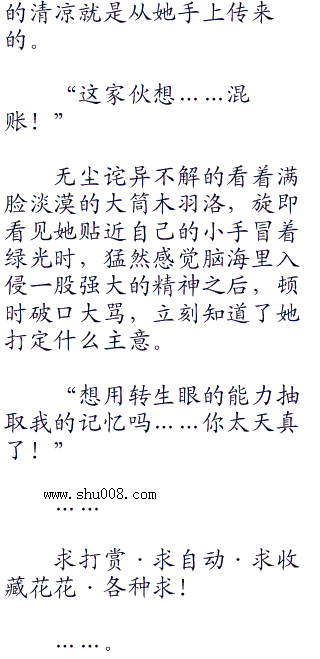 的清凉就是从她手上传来
的。
“这家伙想……混
账！”
无尘诧异不解的看着满
脸淡漠的大筒木羽洛，旋即
看见她贴近自己的小手冒着
绿光时，猛然感觉脑海里入
侵一股强大的精神之后，顿
时破口大骂，立刻知道了她
打定什么主意。
“想用转生眼的能力抽
取我的记忆吗……你太天真
了！”
www.shu008.com
……
求打赏·求自动·求收
藏花花·各种求！
……。